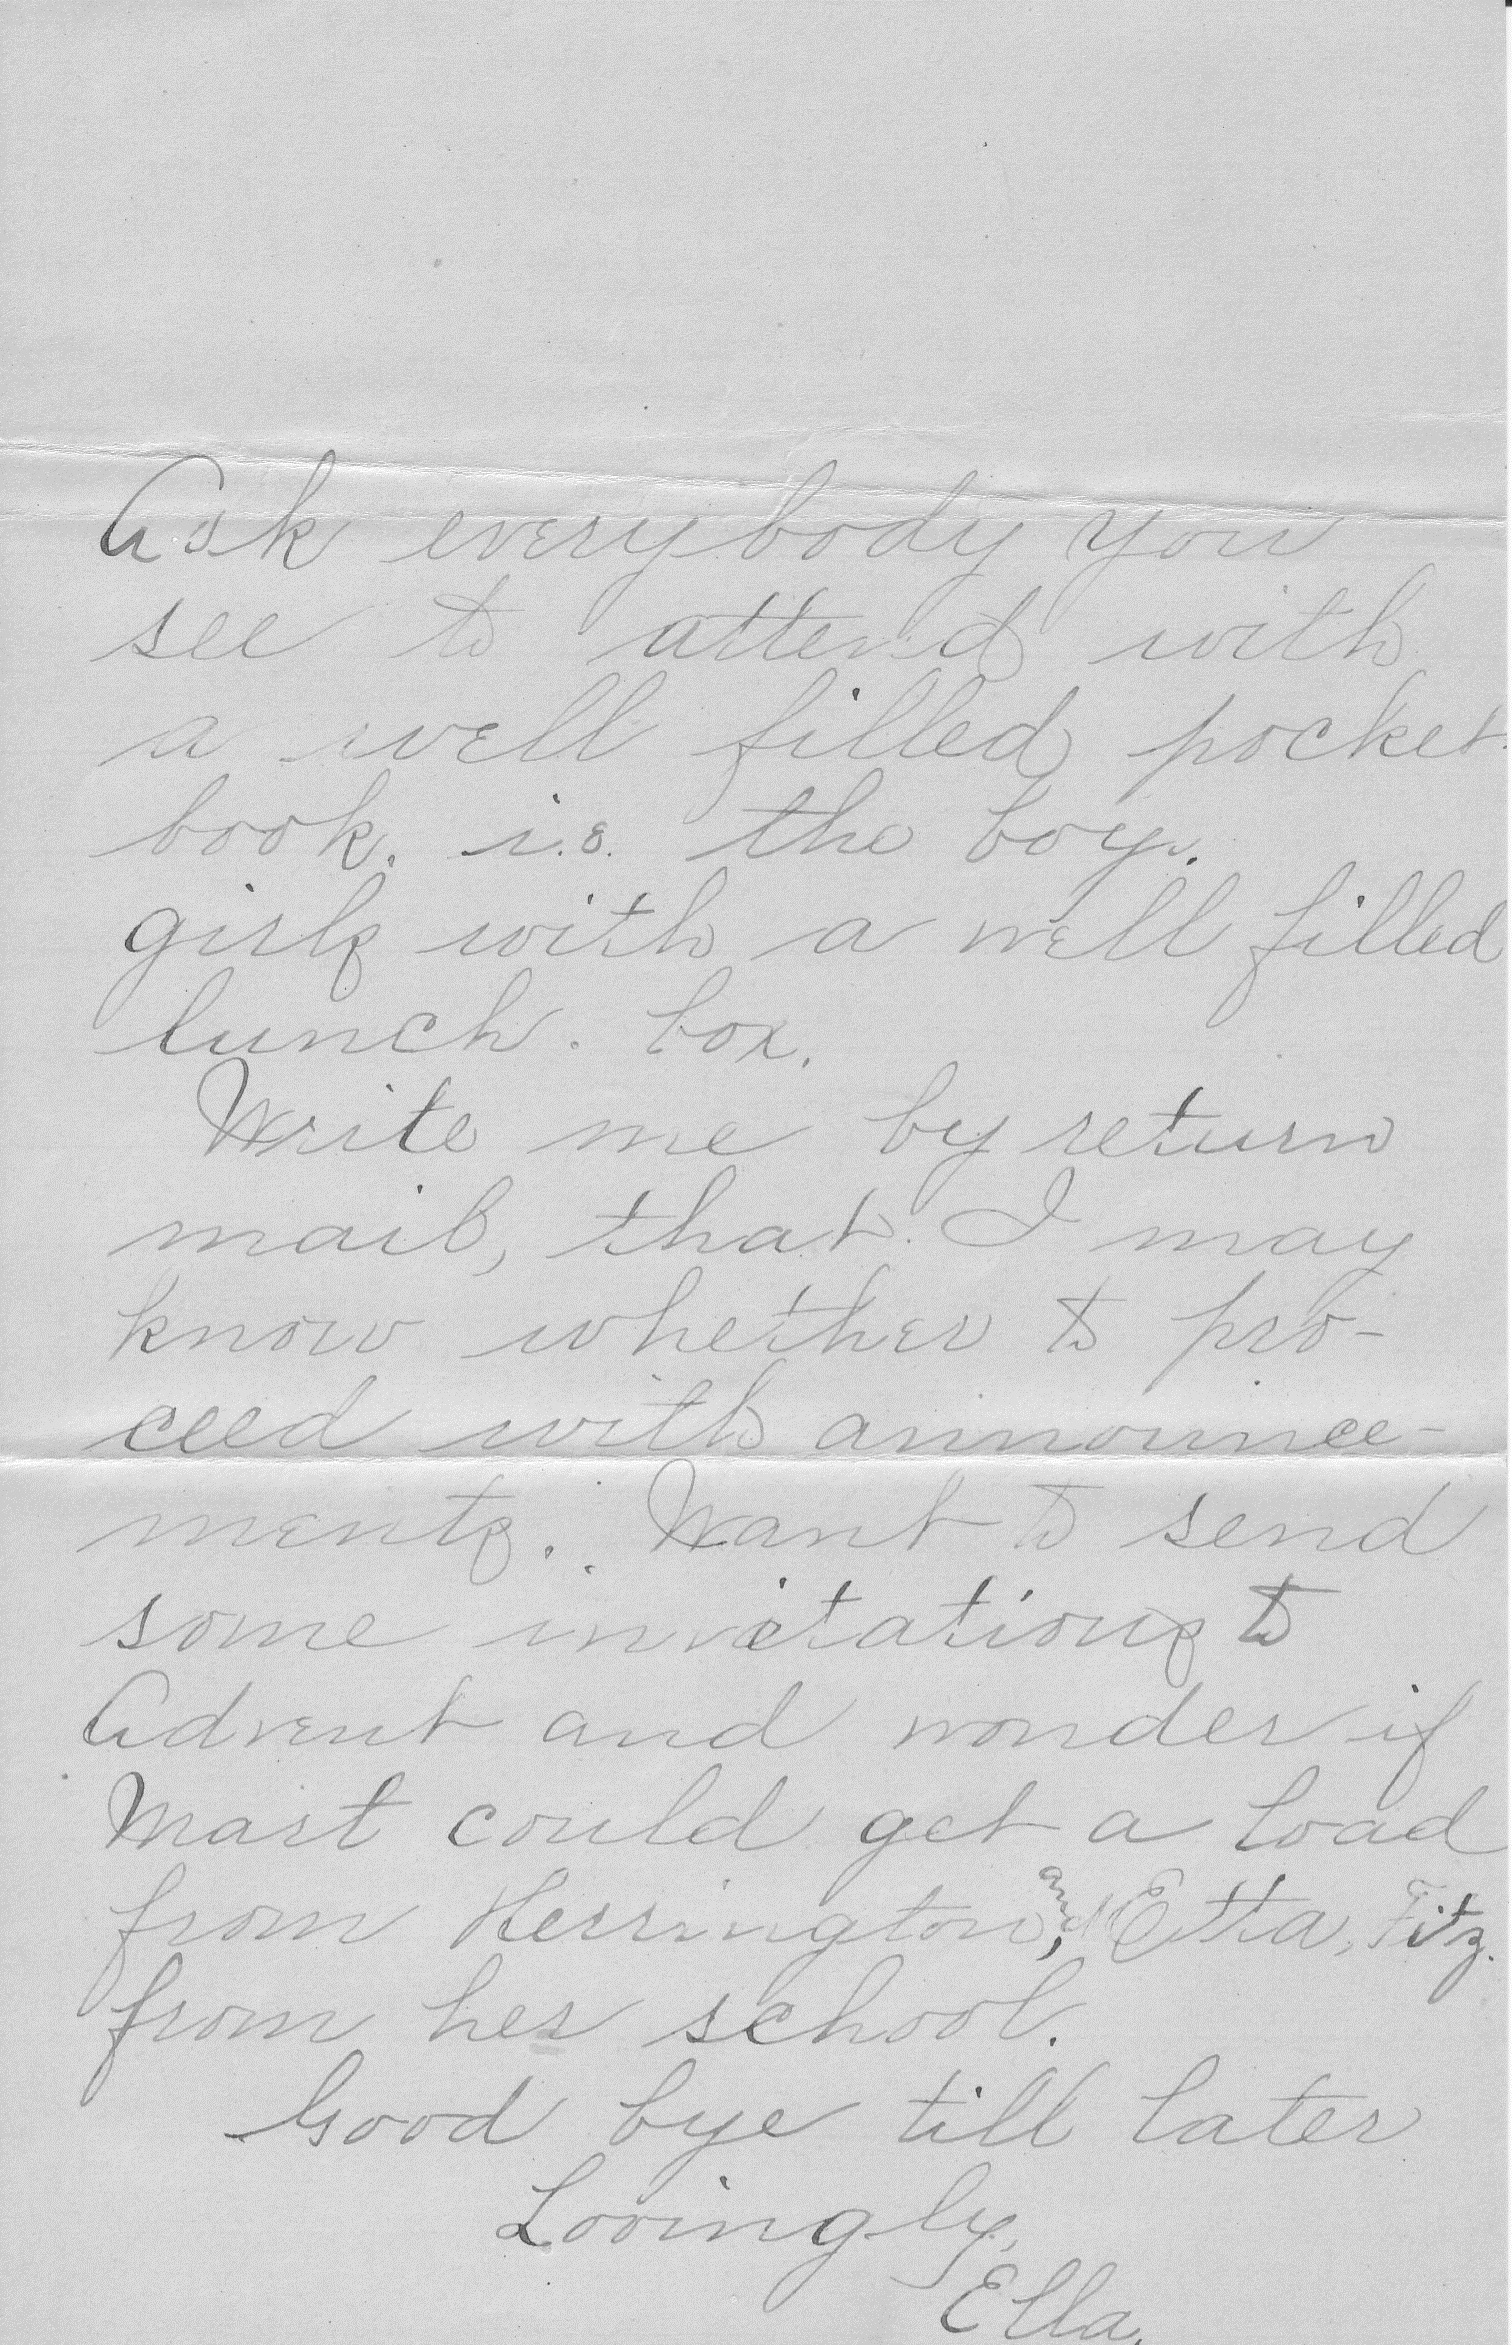 Ask everybody you
see to attend with
a well filled pocket-
book. i.e. the boys.
girls with a well filled
lunch. box.
Write me by return
mail, that I may
know whether to pro-
ceed with announce-
ments. Want to send
some invitations to
Advent and wonder if
Mart could get a load
from Herrington, and Etta, Fitz.
from her school.
Good bye till later
Lovingly,
Ella.